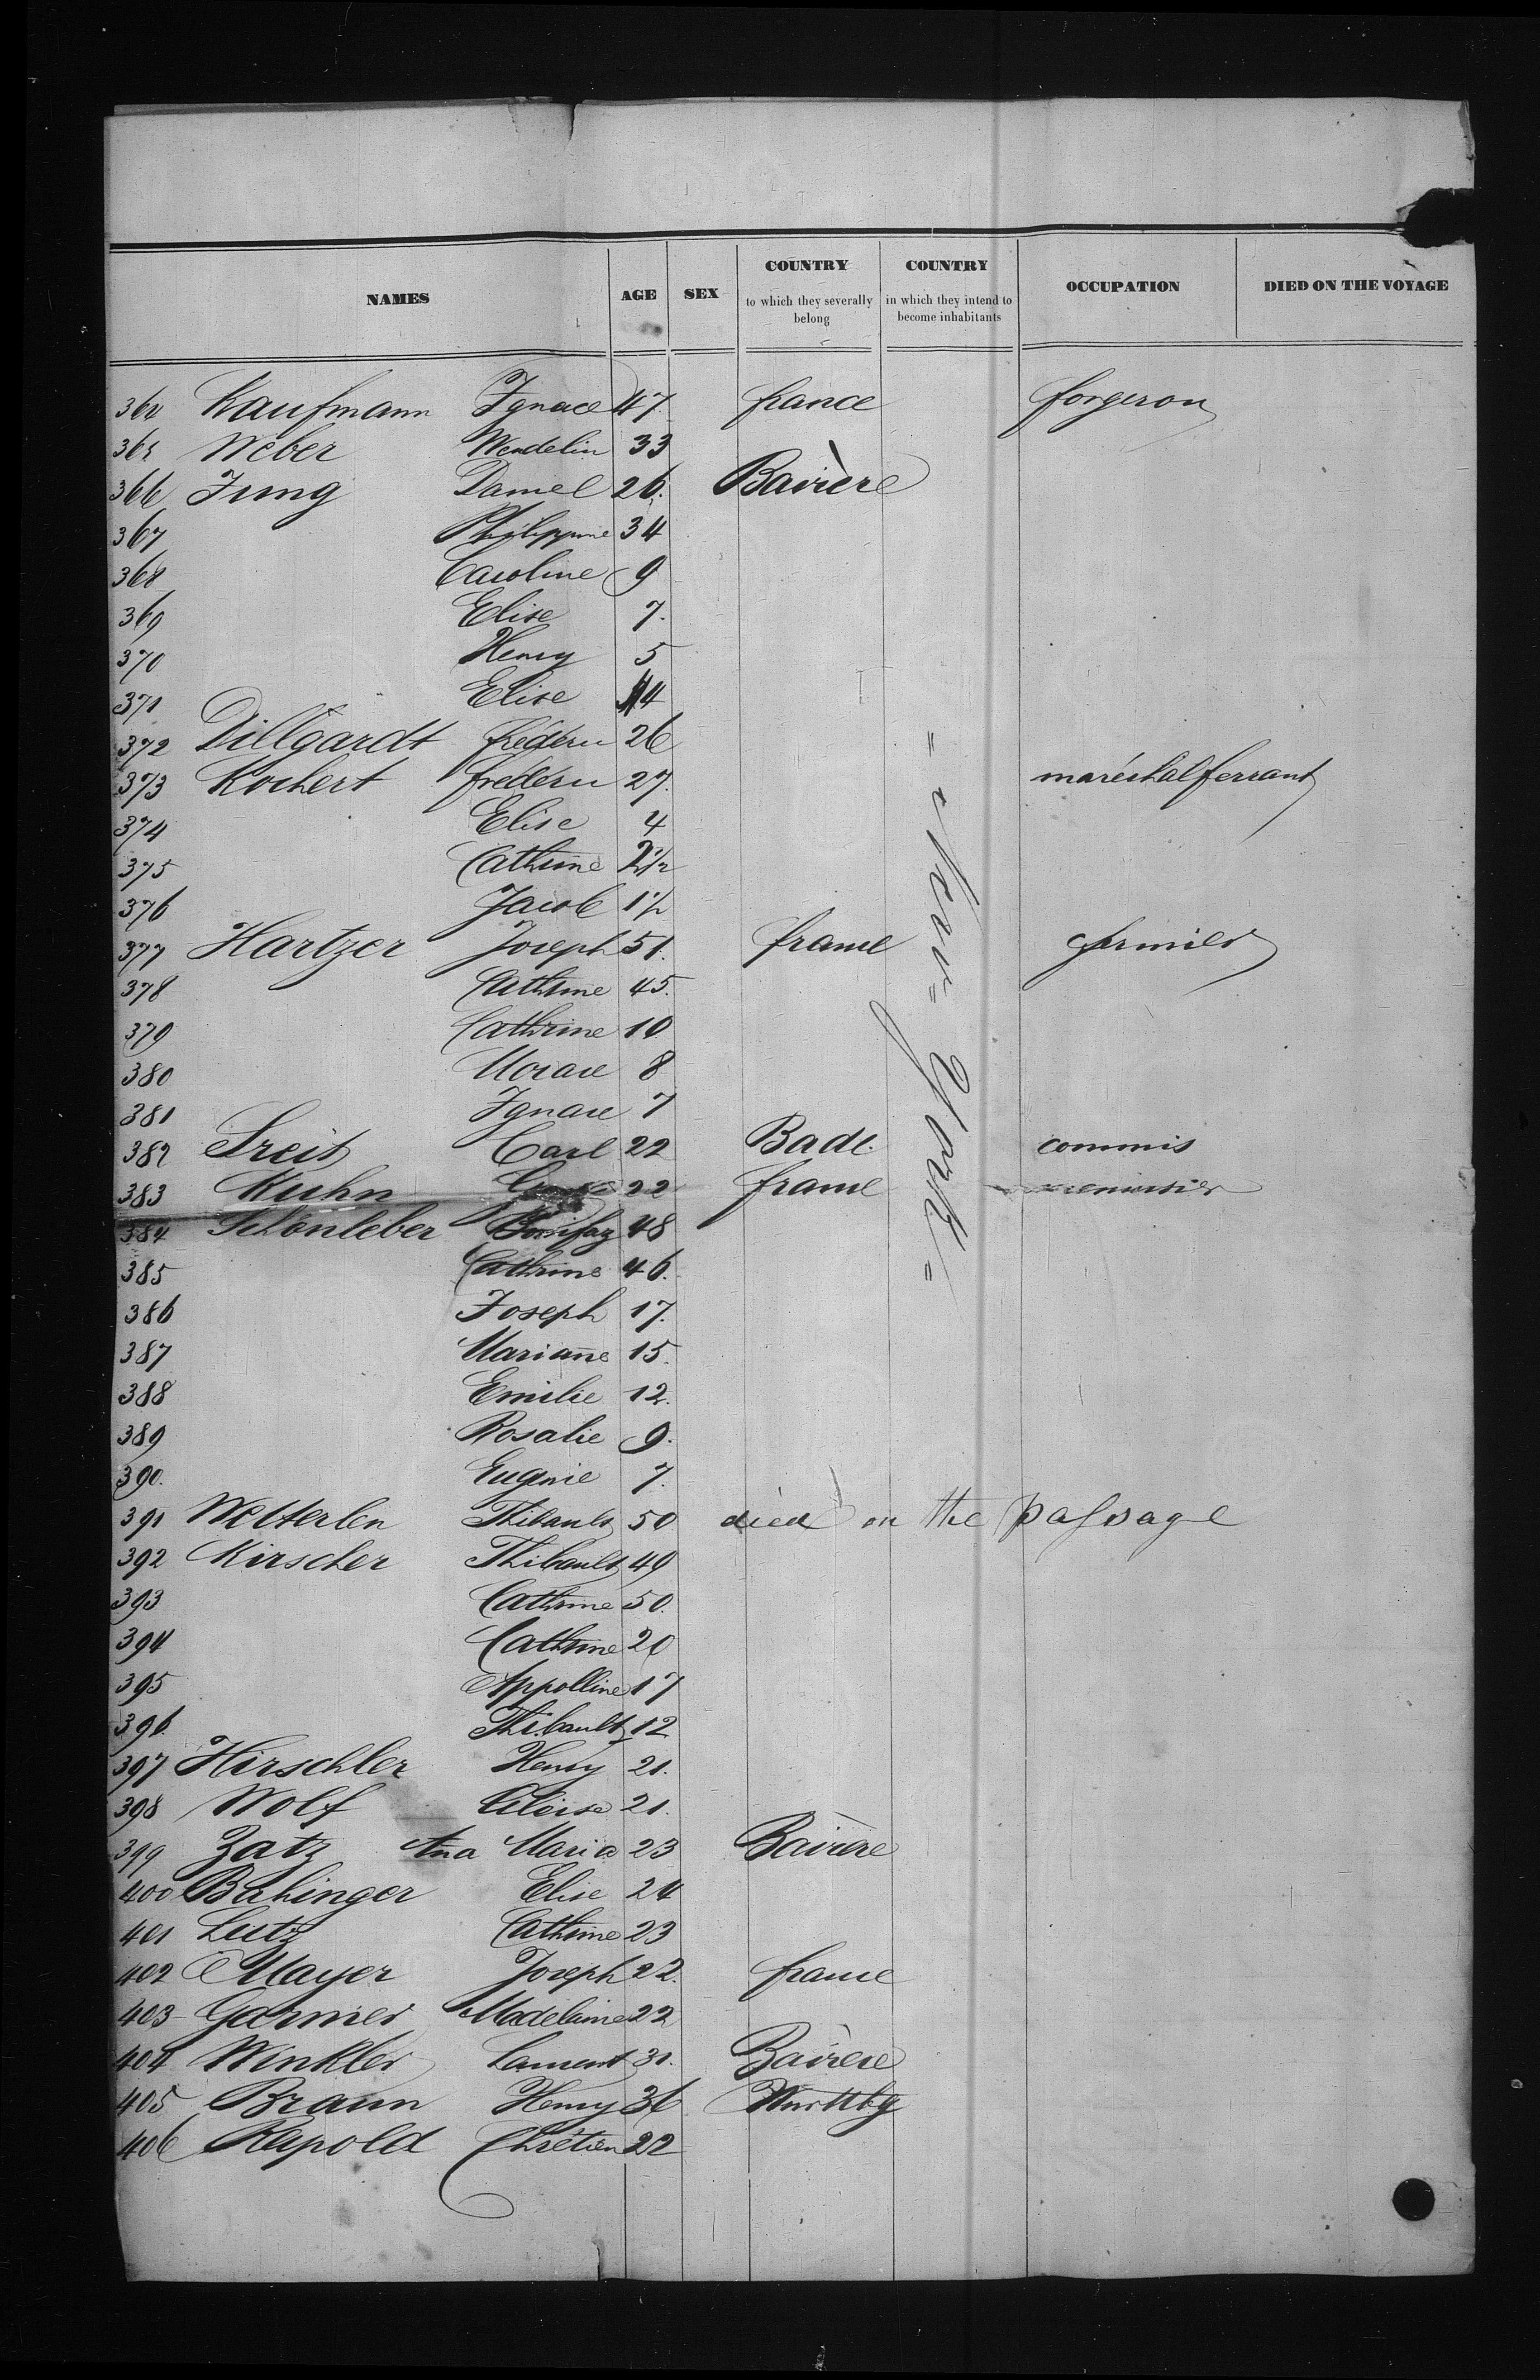 NAMES AGE SEX COUNTRY to which they severally belong COUNTRY in which they intend to become inhabitants OCCUPATION DIED ON THE VOYAGE
364 Kaufmann Ignace 47 france forgeron
365 Weber Wendelin 33
366 Jung Daniel 26. Bavière
367 Philippine 34
368 Caroline 9
369 Elise 7.
370 Henry 5
371 Elise 4
372 Dillgardt fréderic 26
373 Kochert fréderic 27. maréchal ferrant
374 Elise 4
375 Cathrine 2 1/2
376 Jacob 1 1/2
377 Hartzer Joseph 51. france fermier
378 Cathrine 45.
379 Cathrine 10
380 Morace 8
381 Ignace 7
382 Streit Carl 22 Bade. commis
383 Kuhn 22 france
384 Schonleber Bonifaz 48
385 Cathrine 46.
386 Joseph 17.
387 Marianne 15.
388 Emilie 12.
389 Rosalie 9.
390. Eugenie 7.
391 Wetterlen Thibault 50 died on the passage
392 Kirscher Thibault 49
393 Cathrine 50.
394 Cathrine 20
395 Appolline 17
396. Thibault 12
397 Hirschler Henry 21.
398 Wolf Aloise 21.
399 Zatz Ana Maria 23 Bavière
400 Bahinger Elise 24
401 Lutz Cathrine 23
402 Mayer Joseph 22. france
403 Garnier Madelaine 22
404 Winkler Laurent 31. Bavière
405 Braun Henry 36 Wurttbg
406 Repold Chrétien 22
= New=York =